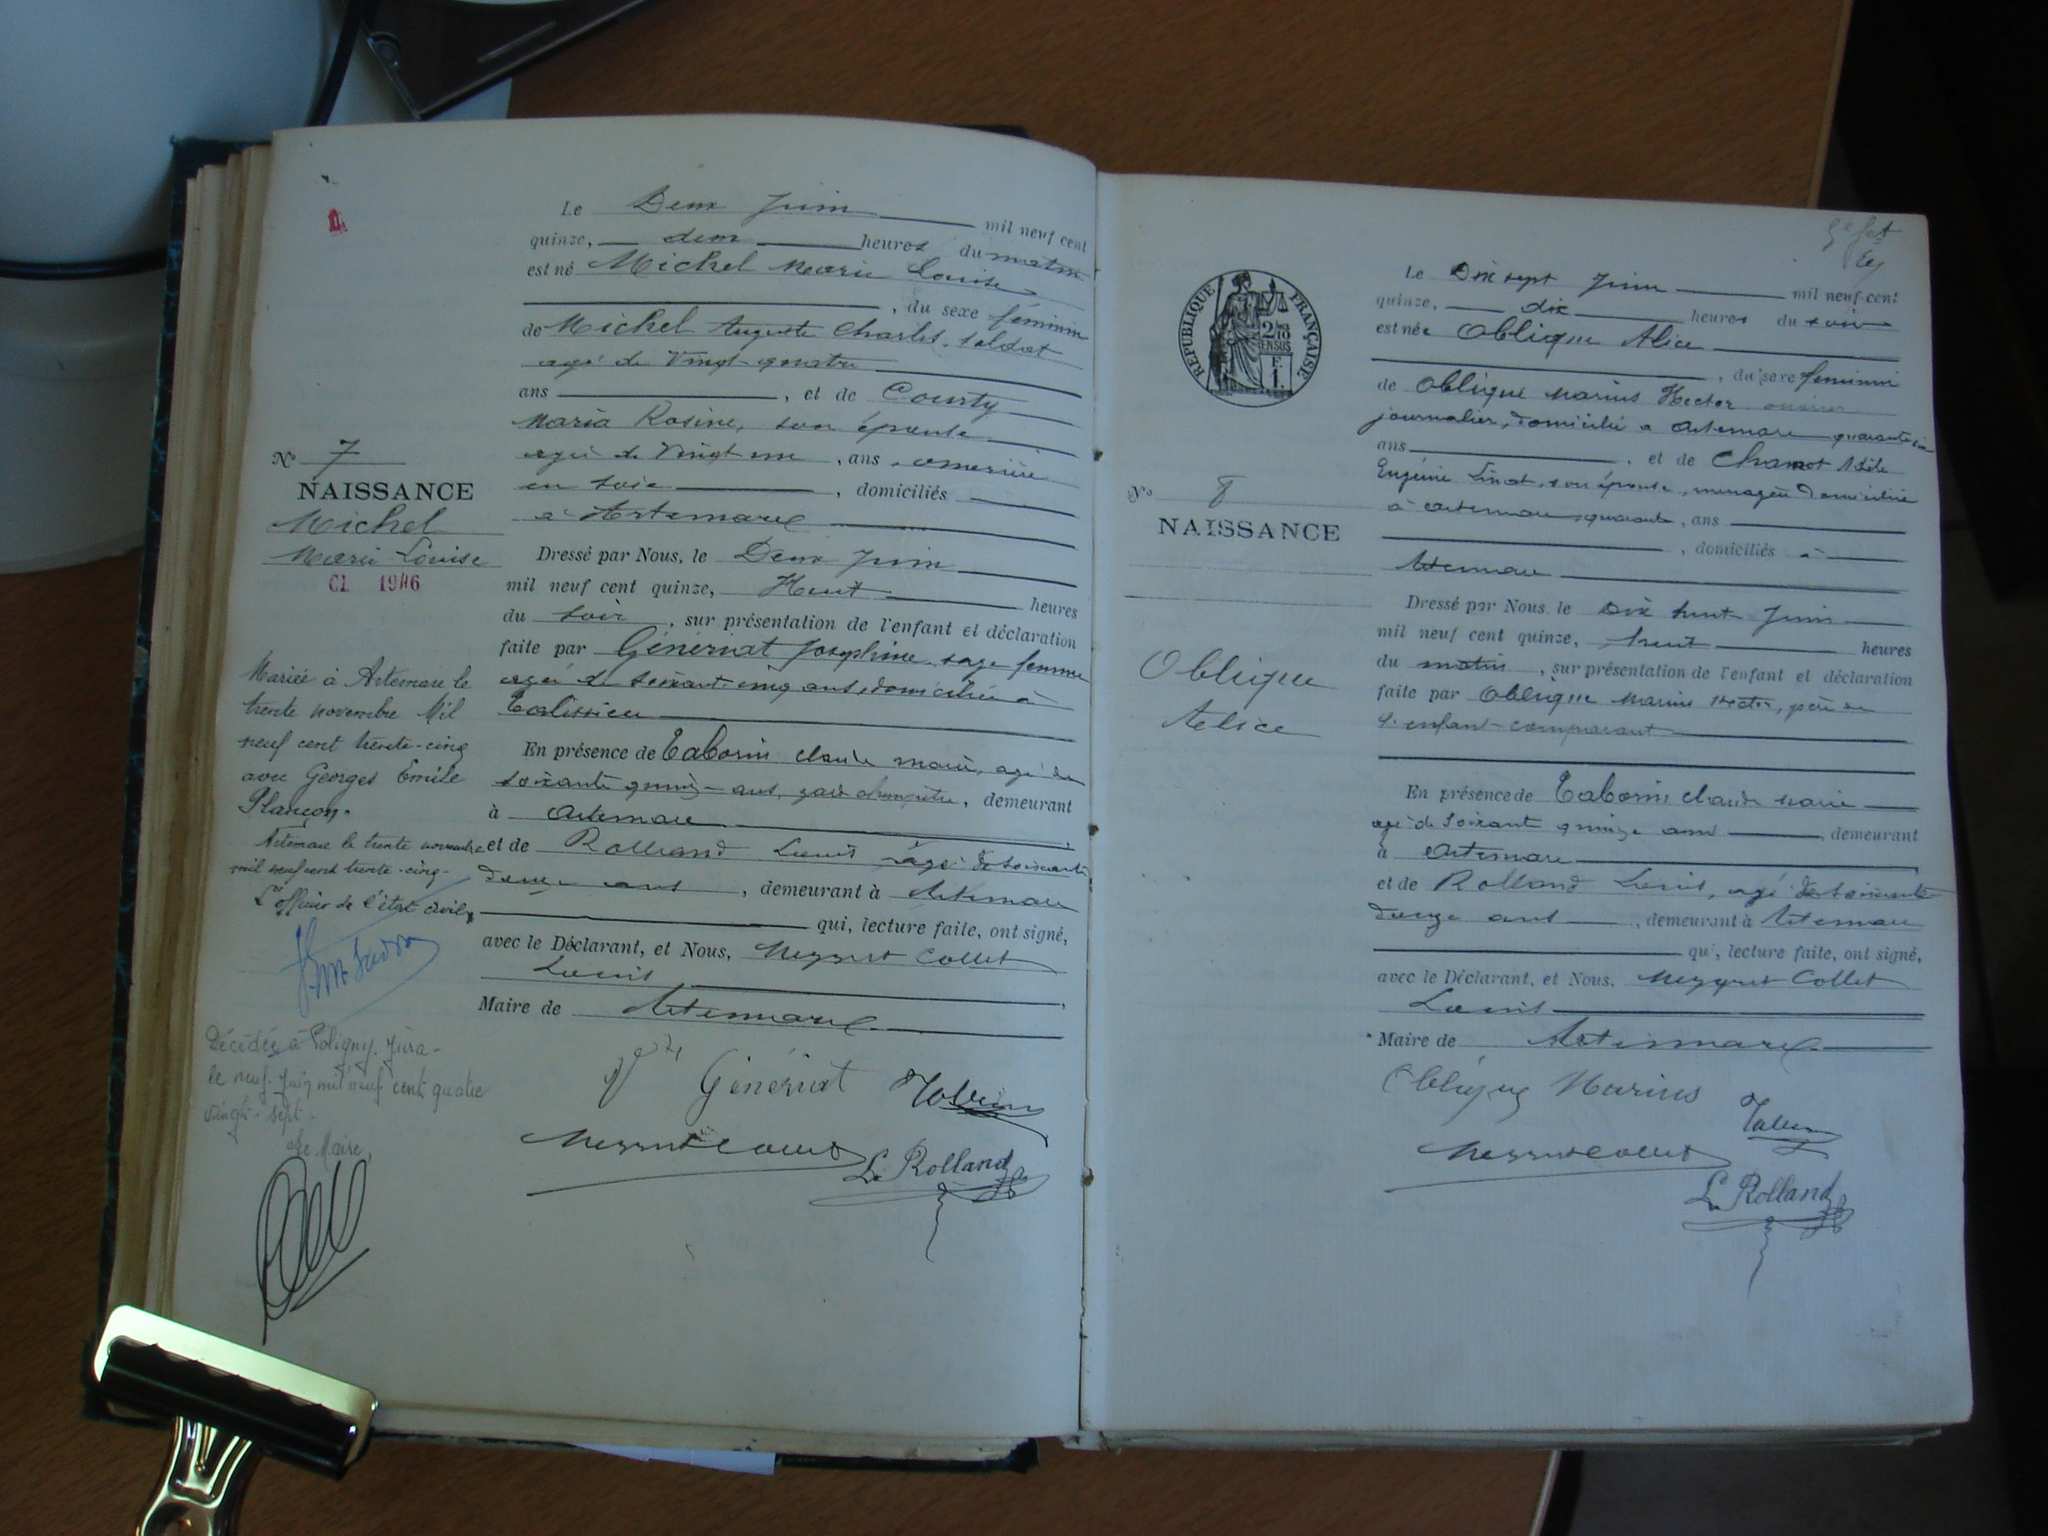 Le Deux Juin mil neuf cent
quinze, deux heures du matin
est né Michel Marie Louise
, du sexe féminin
de Michel Auguste Charles, soldat
agé de Vingt-quatre
ans , et de Courty
Maria Rosine, son épouse
agée de Vingt un , ans , ouvrière
en soie , domiciliés
à Artemare
Dressé par Nous, le Deux Juin
mil neuf cent quinze, Huit heures
du soir , sur présentation de l'enfant et déclaration
faite par Génériat Joséphine, sage femme
agée de soixante-cinq ans, domiciliée à
Talissieu
En présence de Taborin Claude Marie, agé de
soixante quinze ans, garde champêtre, demeurant
à Artemare
et de Rolland Louis agé de soixante
douze ans , demeurant à Artemare
qui, lecture faite, ont signé,
avec le Déclarant, et Nous, Meyssret Collet
Louis ,
Maire de Artemare
Génériat
L. Rolland
No 7
NAISSANCE
Michel
Marie Louise
CI 1946
Mariée à Artemare le
trente novembre Mil
neuf cent trente-cinq
avec Georges Emile
Plançon.
Artemare le trente novembre
mil neuf cent trente-cinq-
L'officier de l'état civil,
Décédée à Poligny. Jura-
le neuf Juin mil neuf cent quatre
vingt-sept-
Le Maire,
Le Dix sept Juin mil neuf cent
quinze, dix heures du soir
est née Oblique Alice
, du sexe féminin
de Oblique Marius Hector ouvrier
journalier, domicilié à Artemare quarante
ans , et de Chamot Adèle
Eugénie , son épouse, ménagère domiciliée
à Artemare, quarante , ans
, domiciliés à
Artemare
Dressé par Nous, le Dix huit Juin
mil neuf cent quinze, huit heures
du matin , sur présentation de l'enfant et déclaration
faite par Oblique Marius Hector, père de
l'enfant comparant
En présence de Taborin Claude Marie
agé de soixante quinze ans , demeurant
à Artemare
et de Rolland Louis, agé de soixante
douze ans , demeurant à Artemare
qui, lecture faite, ont signé,
avec le Déclarant, et Nous, Collet
Louis
Maire de Artemare
Oblique Marius
L. Rolland
RÉPUBLIQUE FRANÇAISE
2/10 EN SUS
F. 1.
No 8
NAISSANCE
Oblique
Alice